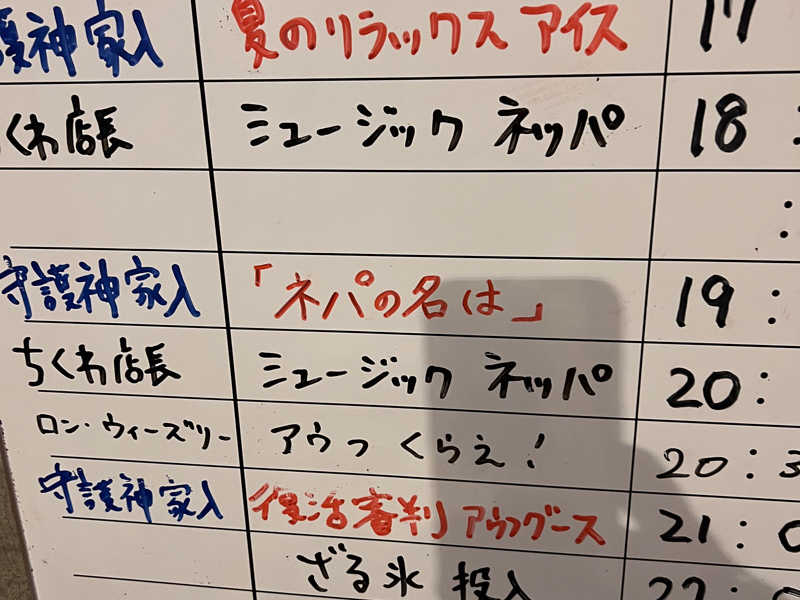 護神家入 夏のリラックス アイス 17
くわ店長 ミュージック ネッパ 18:
:
守護神家入 「ネパの名は」 19:
ちくわ店長 ミュージック ネッパ 20:
ロン・ウィーズリー アウっ くらえ! 20:3
守護神家入 復活審判 アウフグース 21:0
ざる氷 投入 22:0